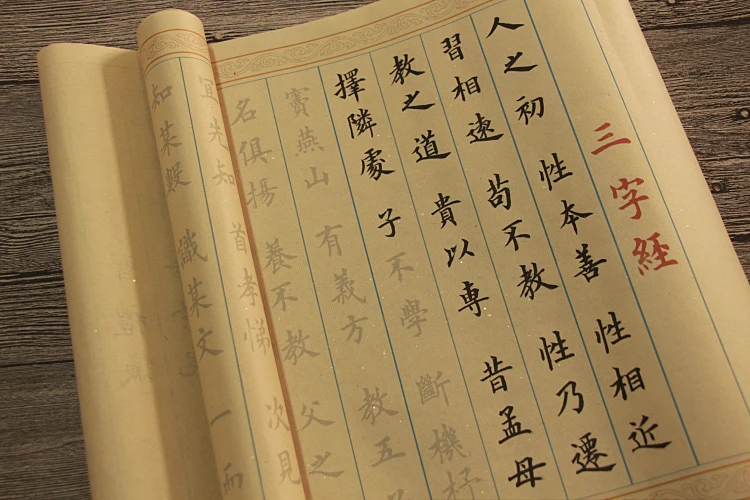 三字經
人之初 性本善 性相近
習相遠 苟不教 性乃遷
教之道 貴以専 昔孟母
擇隣處 子不學 斷機杼
竇燕山 有義方 教五
名俱揚 養不教 父之
宜先知 首孝悌 次見
知某數 識某文 一而